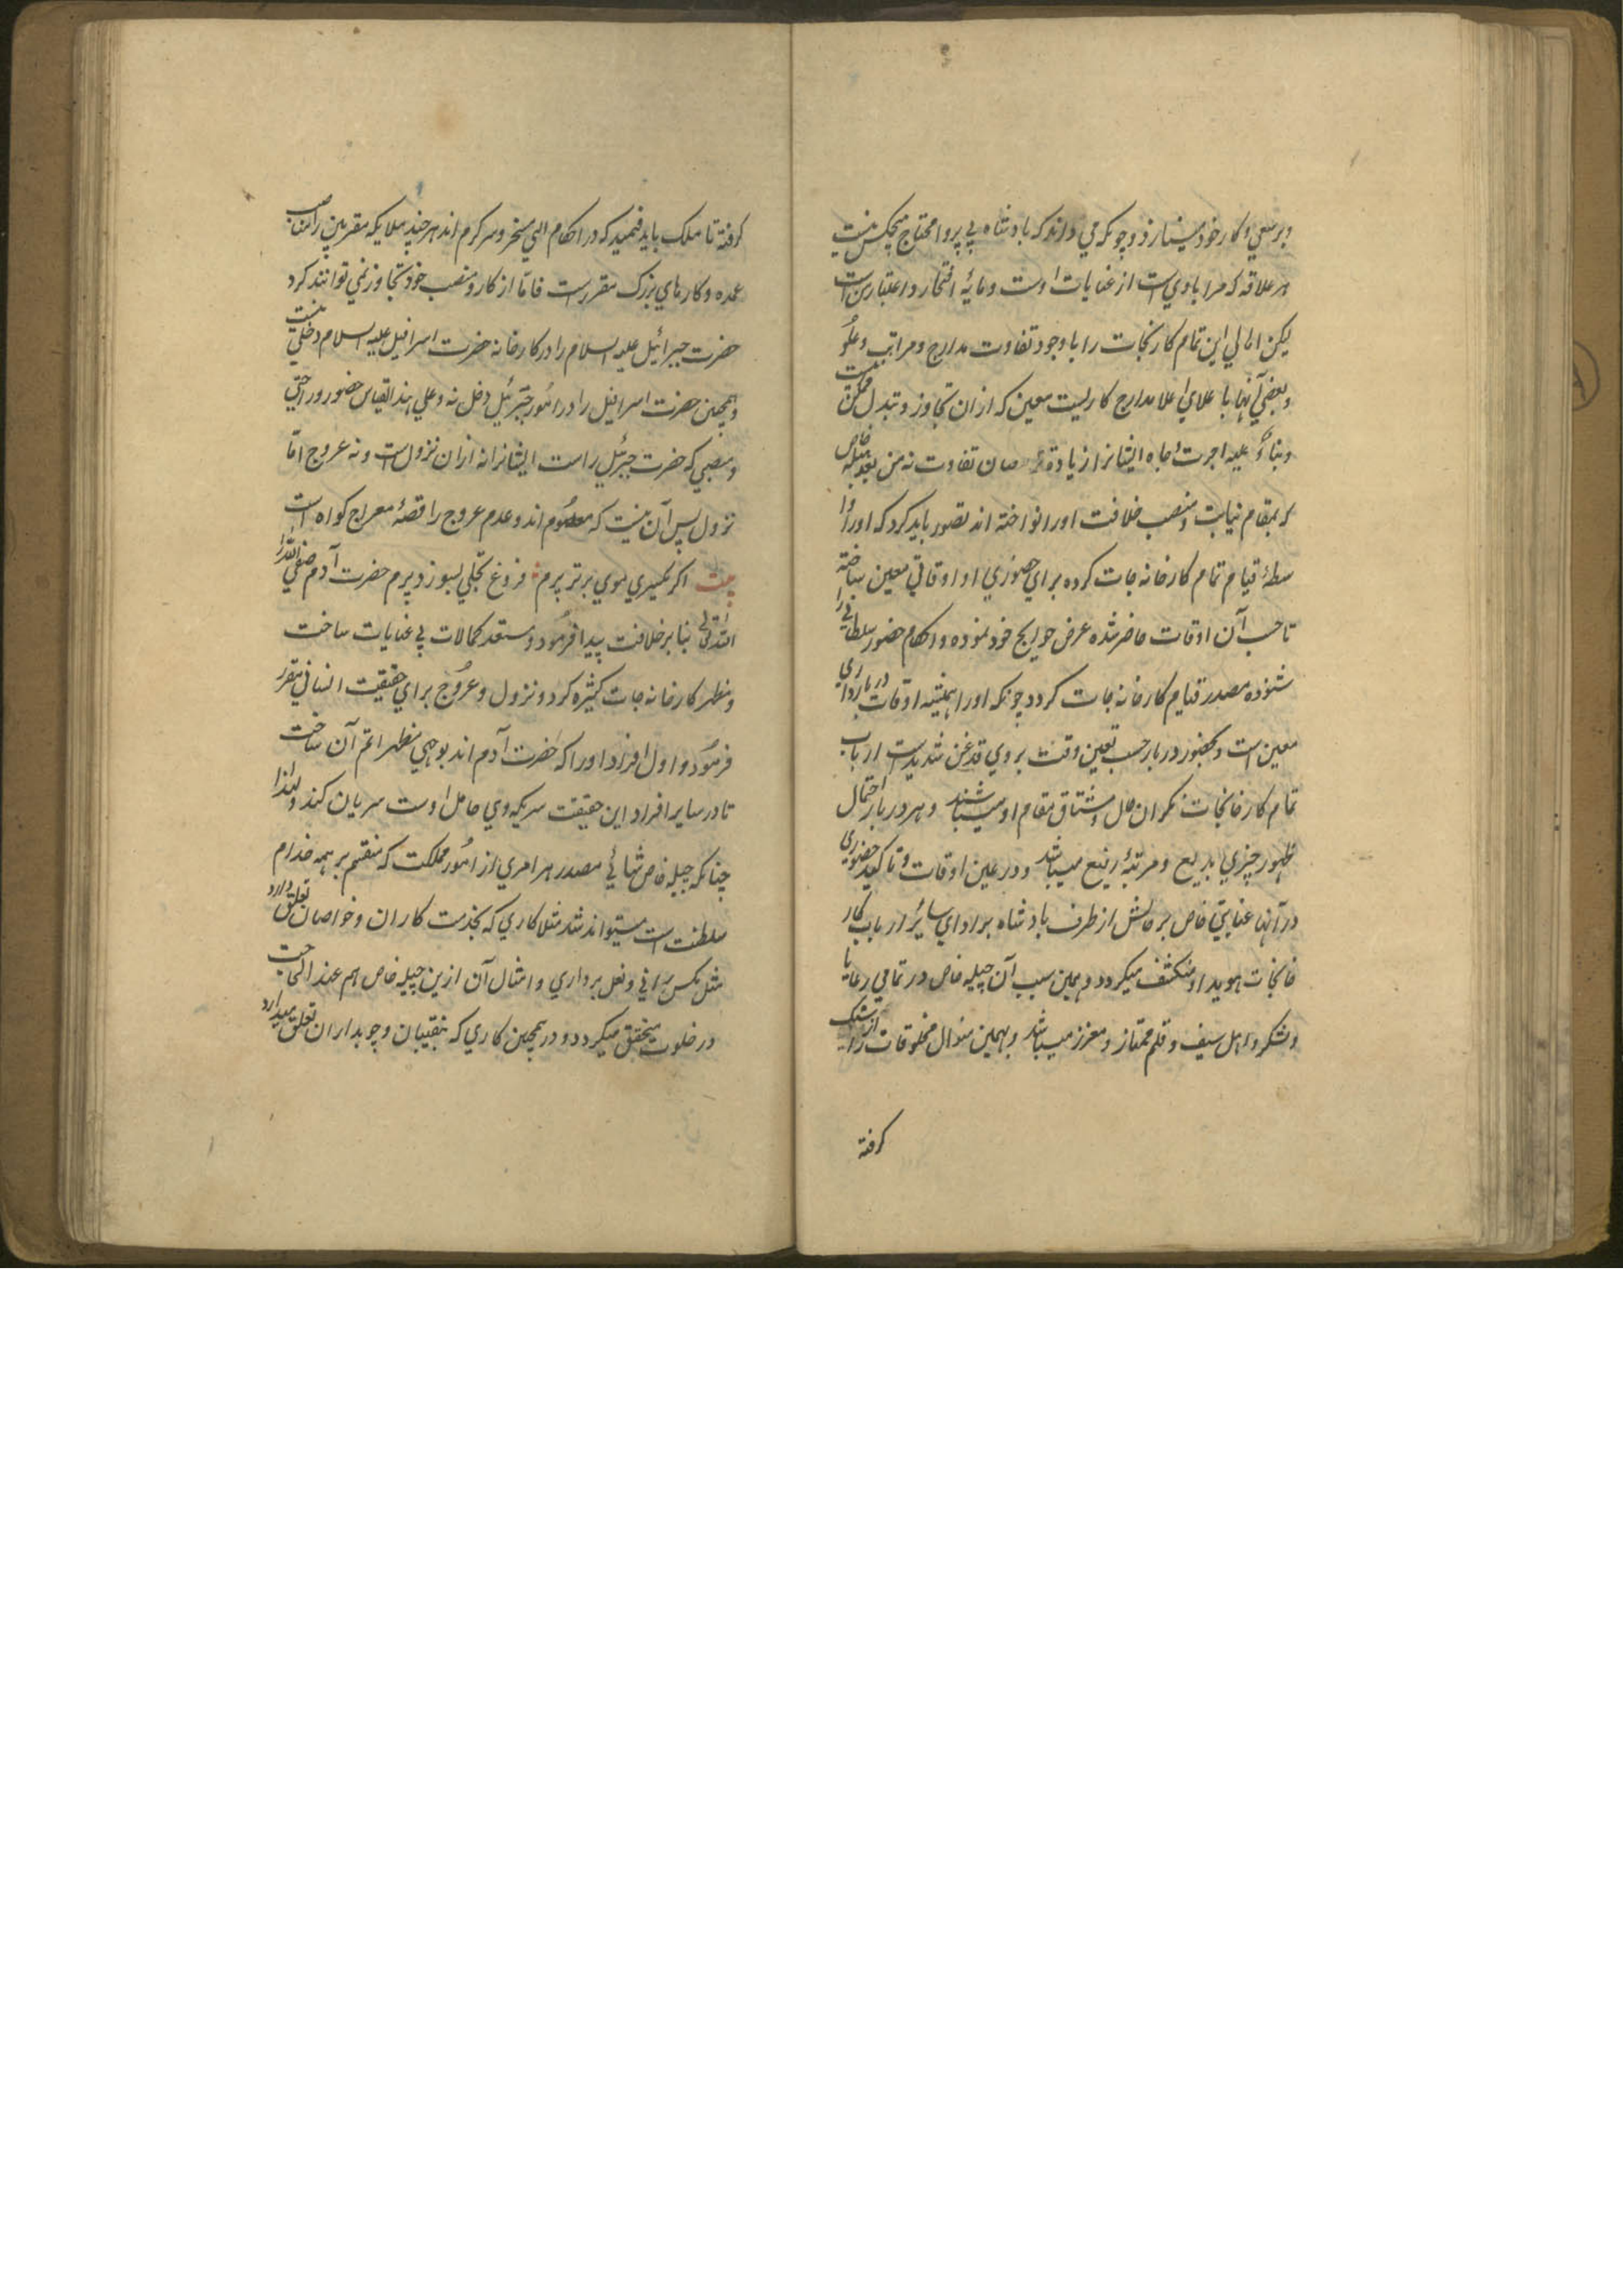 و بر سعي و كار خود مينازد و چونكه مي داند كه بادشاه بي پروا محتاج هيچكس نيست
هر علاقه كه مرا با وي است از عنايات اوست و مايهٔ افتخار و اعتبار من است
ليكن اهالي اين تمام كارخانجات را با وجود تفاوت مدارج و مراتب و علوّ
بعضي آنها با علاي اعلا مدارج كاريست معين كه از ان تجاوز و تبدل ممكن نيست
و بناءً عليه اجرت و جاه ايشانرا از يادة و نقصان تفاوت نه من بعد چيله خاص
كه بمقام نيابت و منصب خلافت او را نواخته اند تصور بايد كرد كه او را وا
سطهٔ قيام تمام كارخانه جات كرده براي حضوري او اوقاتي معين ساخته
تا حسب آن اوقات حاضر شده عرض حوايج خود نموده و احكام حضور سلطاني را
شنوده مصدر قيام كارخانه جات كردد چونكه او را هميشه اوقات درباداري
معين است و بحضور دربار حسب تعين وقت بر وي قدغن شديد است ارباب
تمام كارخانجات نكران حال و مشتاق مقام او ميباشند و هر دربار احتمال
ظهور چيزي بديع و مرتبهٔ رفيع ميباشد و در عين اوقات و تاكيد حضوري
در آنها عنايتي خاص بر حالش از طرف بادشاه بر اداي ساير ارباب كار
خانجات هويدا و منكشف ميكردد و بهمين سبب آن چيله خاص در تمامي رعايا
و لشكر و اهل سيف و قلم ممتاز و معزز ميباشد و بهمين منوال مخلوقات را از سنك
كرفته
كرفته تا ملك بايد فهميد كه در احكام الهي مسخر و سركرم اند هر چند ملايكه مقربين را مناصب
عمده و كارهاي بزرك مقرر است فاما از كار و منصب خود تجاوز نمي توانند كرد
حضرت جبرائيل عليه السلام را در كارخانه حضرت اسرافيل عليه السلام دخلي نيست
و همچنين حضرت اسرافيل را در امور جبرئيل دخل نه و علي هذا القياس حضور و راحتي
و منصبي كه حضرت جبرئيل راست ايشانرا نه از ان نزول است و نه عروج امّا
نزول پس آن نيست كه معصوم اند و عدم عروج را قصهٔ معراج كواه است
بيت اكر يكسر موي برتر پرم فروغ تجلي بسوزد پرم حضرت آدم صفي الله را
الله تعالي بنا بر خلافت پيدا فرمود و مستعد كمالات بي غايات ساخت
و مظهر كارخانه جات كثيره كرد و نزول و عروج براي حقيقت انساني مقرر
فرمود و اول افراد او را كه حضرت آدم اند بوجهي مظهر اتم آن ساخت
تا در ساير افراد اين حقيقت سريكه وي حامل اوست سريان كند و لهذا
چنانكه چيله خاص تنهائي مصدر هر امري از امور مملكت كه منقسم بر همه خدام
سلطنت است ميتواند شد مثلا كاري كه بخدمت كاران و خواصان تعلق دارد
مثل مكس راني و نعل برداري و امثال آن از ين چيله خاص هم عند الحاجت
در خلوت متحقق ميكردد و در همچنين كاري كه بنقيبان و چوبداران تعلق ميدارد